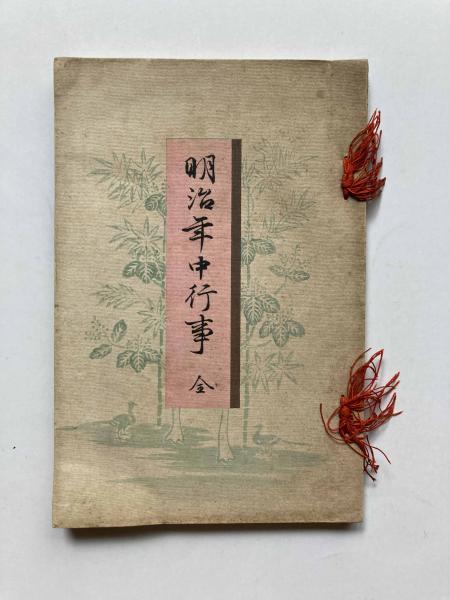 明治年中行事 全